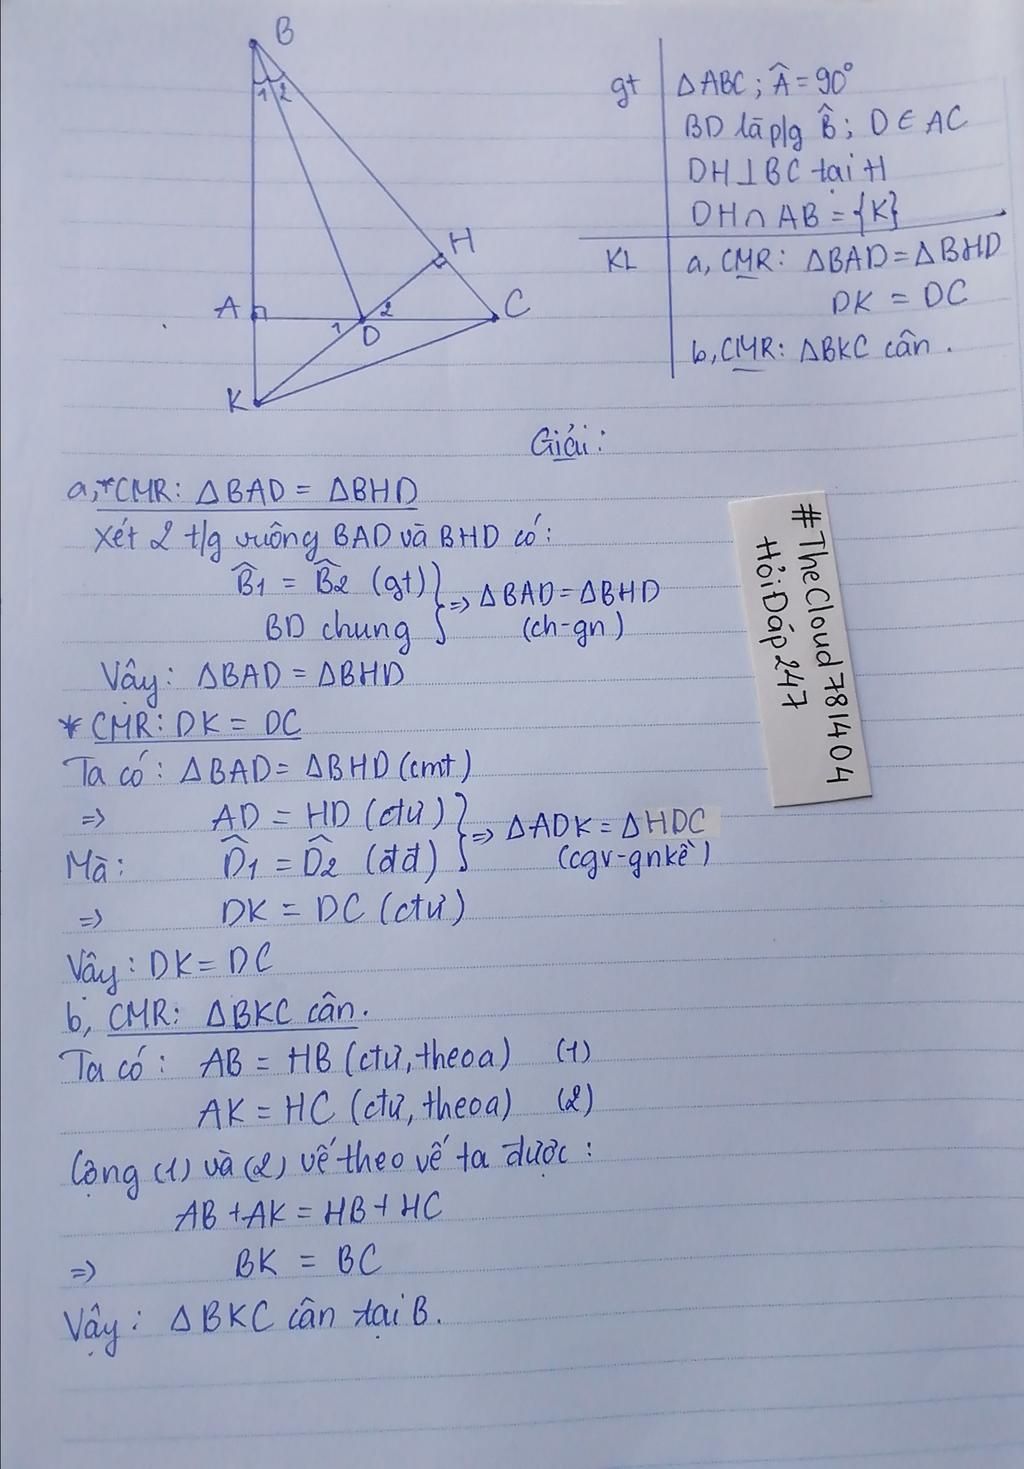 B
1 2
H
A
1 D 2
C
K
gt
ΔABC; Â = 90°
BD là p/g B̂; D ∈ AC
DH ⊥ BC tại H
DH ∩ AB = {K}
KL
a, CMR: ΔBAD = ΔBHD
DK = DC
b, CMR: ΔBKC cân.
Giải:
a, *CMR: ΔBAD = ΔBHD
Xét 2 t/g vuông BAD và BHD có:
B̂1 = B̂2 (gt) } => ΔBAD = ΔBHD
BD chung (ch-gn)
Vậy: ΔBAD = ΔBHD
* CMR: DK = DC
Ta có: ΔBAD = ΔBHD (cmt)
=> AD = HD (ctư) } => ΔADK = ΔHDC
Mà: D̂1 = D̂2 (đđ) (cgv-gnkề)
=> DK = DC (ctư)
Vậy: DK = DC
b, CMR: ΔBKC cân.
Ta có: AB = HB (ctư, theo a) (1)
AK = HC (ctư, theo a) (2)
Cộng (1) và (2) vế theo vế ta được:
AB + AK = HB + HC
=> BK = BC
Vậy: ΔBKC cân tại B.
#TheCloud781404
HỏiĐáp247